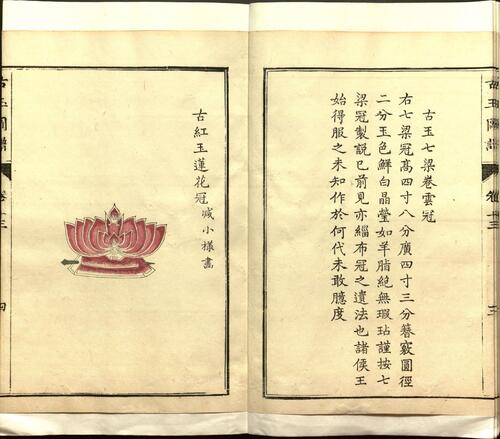 古玉圖譜
卷十三
古玉七梁卷雲冠
右七梁冠髙四寸八分廣四寸三分簪竅圓徑
二分玉色鮮白晶瑩如羊脂絶無瑕玷謹按七
梁冠製説已前見亦緇布冠之遺法也諸侯王
始得服之未知作於何代未敢臆度
古紅玉蓮花冠減小様畫
古玉圖譜
卷十三
四